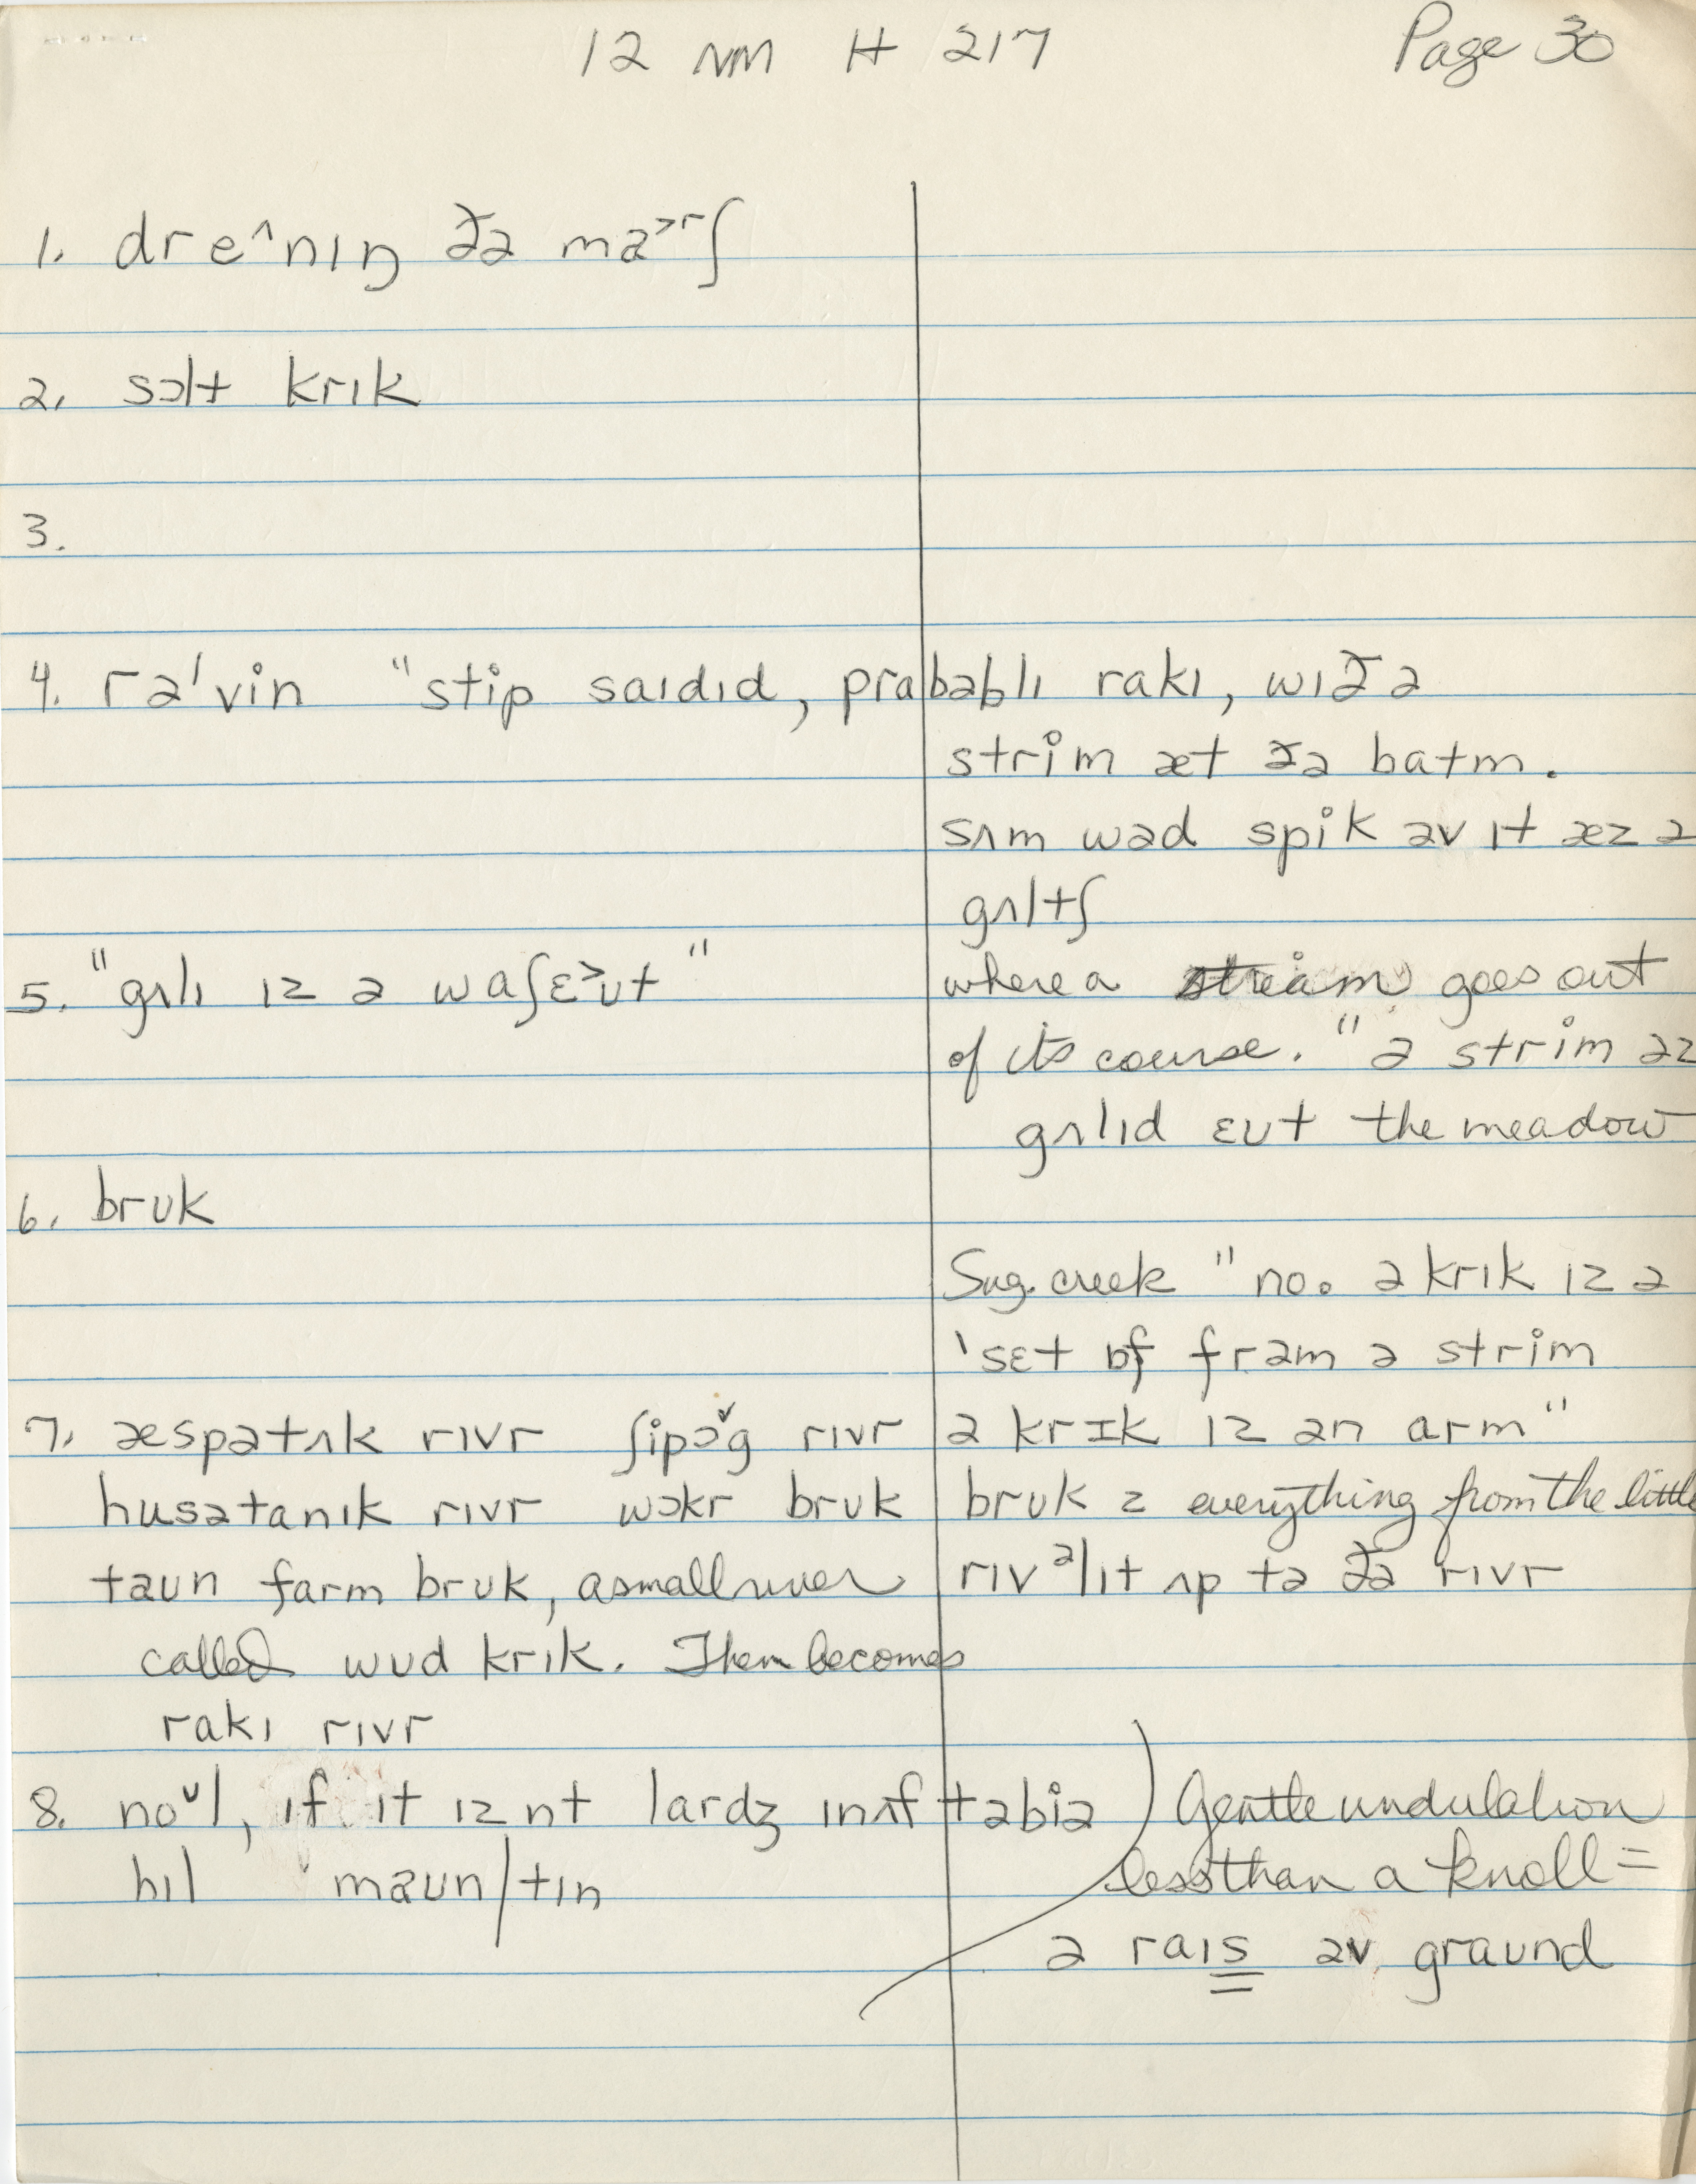 12 NM H 217 Page 30
1. dre^nıŋ ðə ma>rʃ
2. sɔlt krɪk
3.
4. rəˈvin "stip saɪdɪd, prabəblɪ rakɪ, wɪð ə
strim æt ðə batm.
sʌm wəd spik əv ɪt æz ə
gʌltʃ
5. "gʌlɪ ɪz ə waʃɛ>ʊt"
where a stream goes out
of its course. "ə strim əz
gʌlɪd ɛʊt the meadow
6. brʊk
Sug. creek "no. ə krɪk ɪz ə
ˈsɛt ɒf frəm ə strim
ə krɪk ɪz ən arm"
7. æspətʌk rɪvr ʃipɔˇg rɪvr
husətanɪk rɪvr wɔkr brʊk
taʊn farm brʊk, a small river
called wʊd krik. Then becomes
rakɪ rɪvr
brʊk = everything from the little
rɪvəlɪt ʌp tə ðə rɪvr
8. noʊl, ɪf ɪt ɪznt lardʒ ɪnʌf təbiə
hɪl maʊn/tɪn
Gentle undulation
less than a knoll =
ə raɪs əv graʊnd